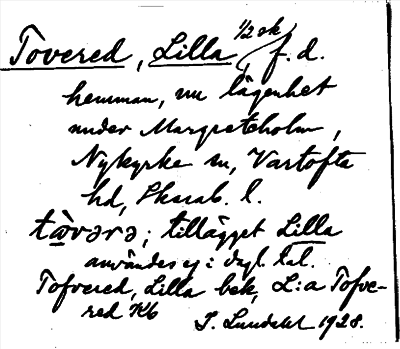 Tovered, Lilla, 1/2 sk f. d.
hemman, nu lägenhet
under Margreteholm,
Nykyrke sn, Vartofta
hd, Skarab. l.
tàvərə; tillägget Lilla
användes ej i dagl. tal.
Tofvered, Lilla bek, L:a Tofve-
red Kb
J. Lundahl 1928.